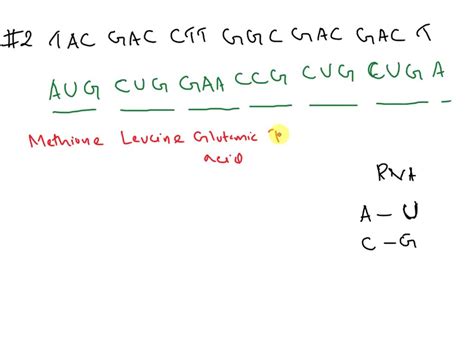 #2 TAC GAC CTT GGC GAC GAC T
AUG CUG GAA CCG CUG CUG A
Methione Leucine Glutamic
acid
RNA
A - U
C - G